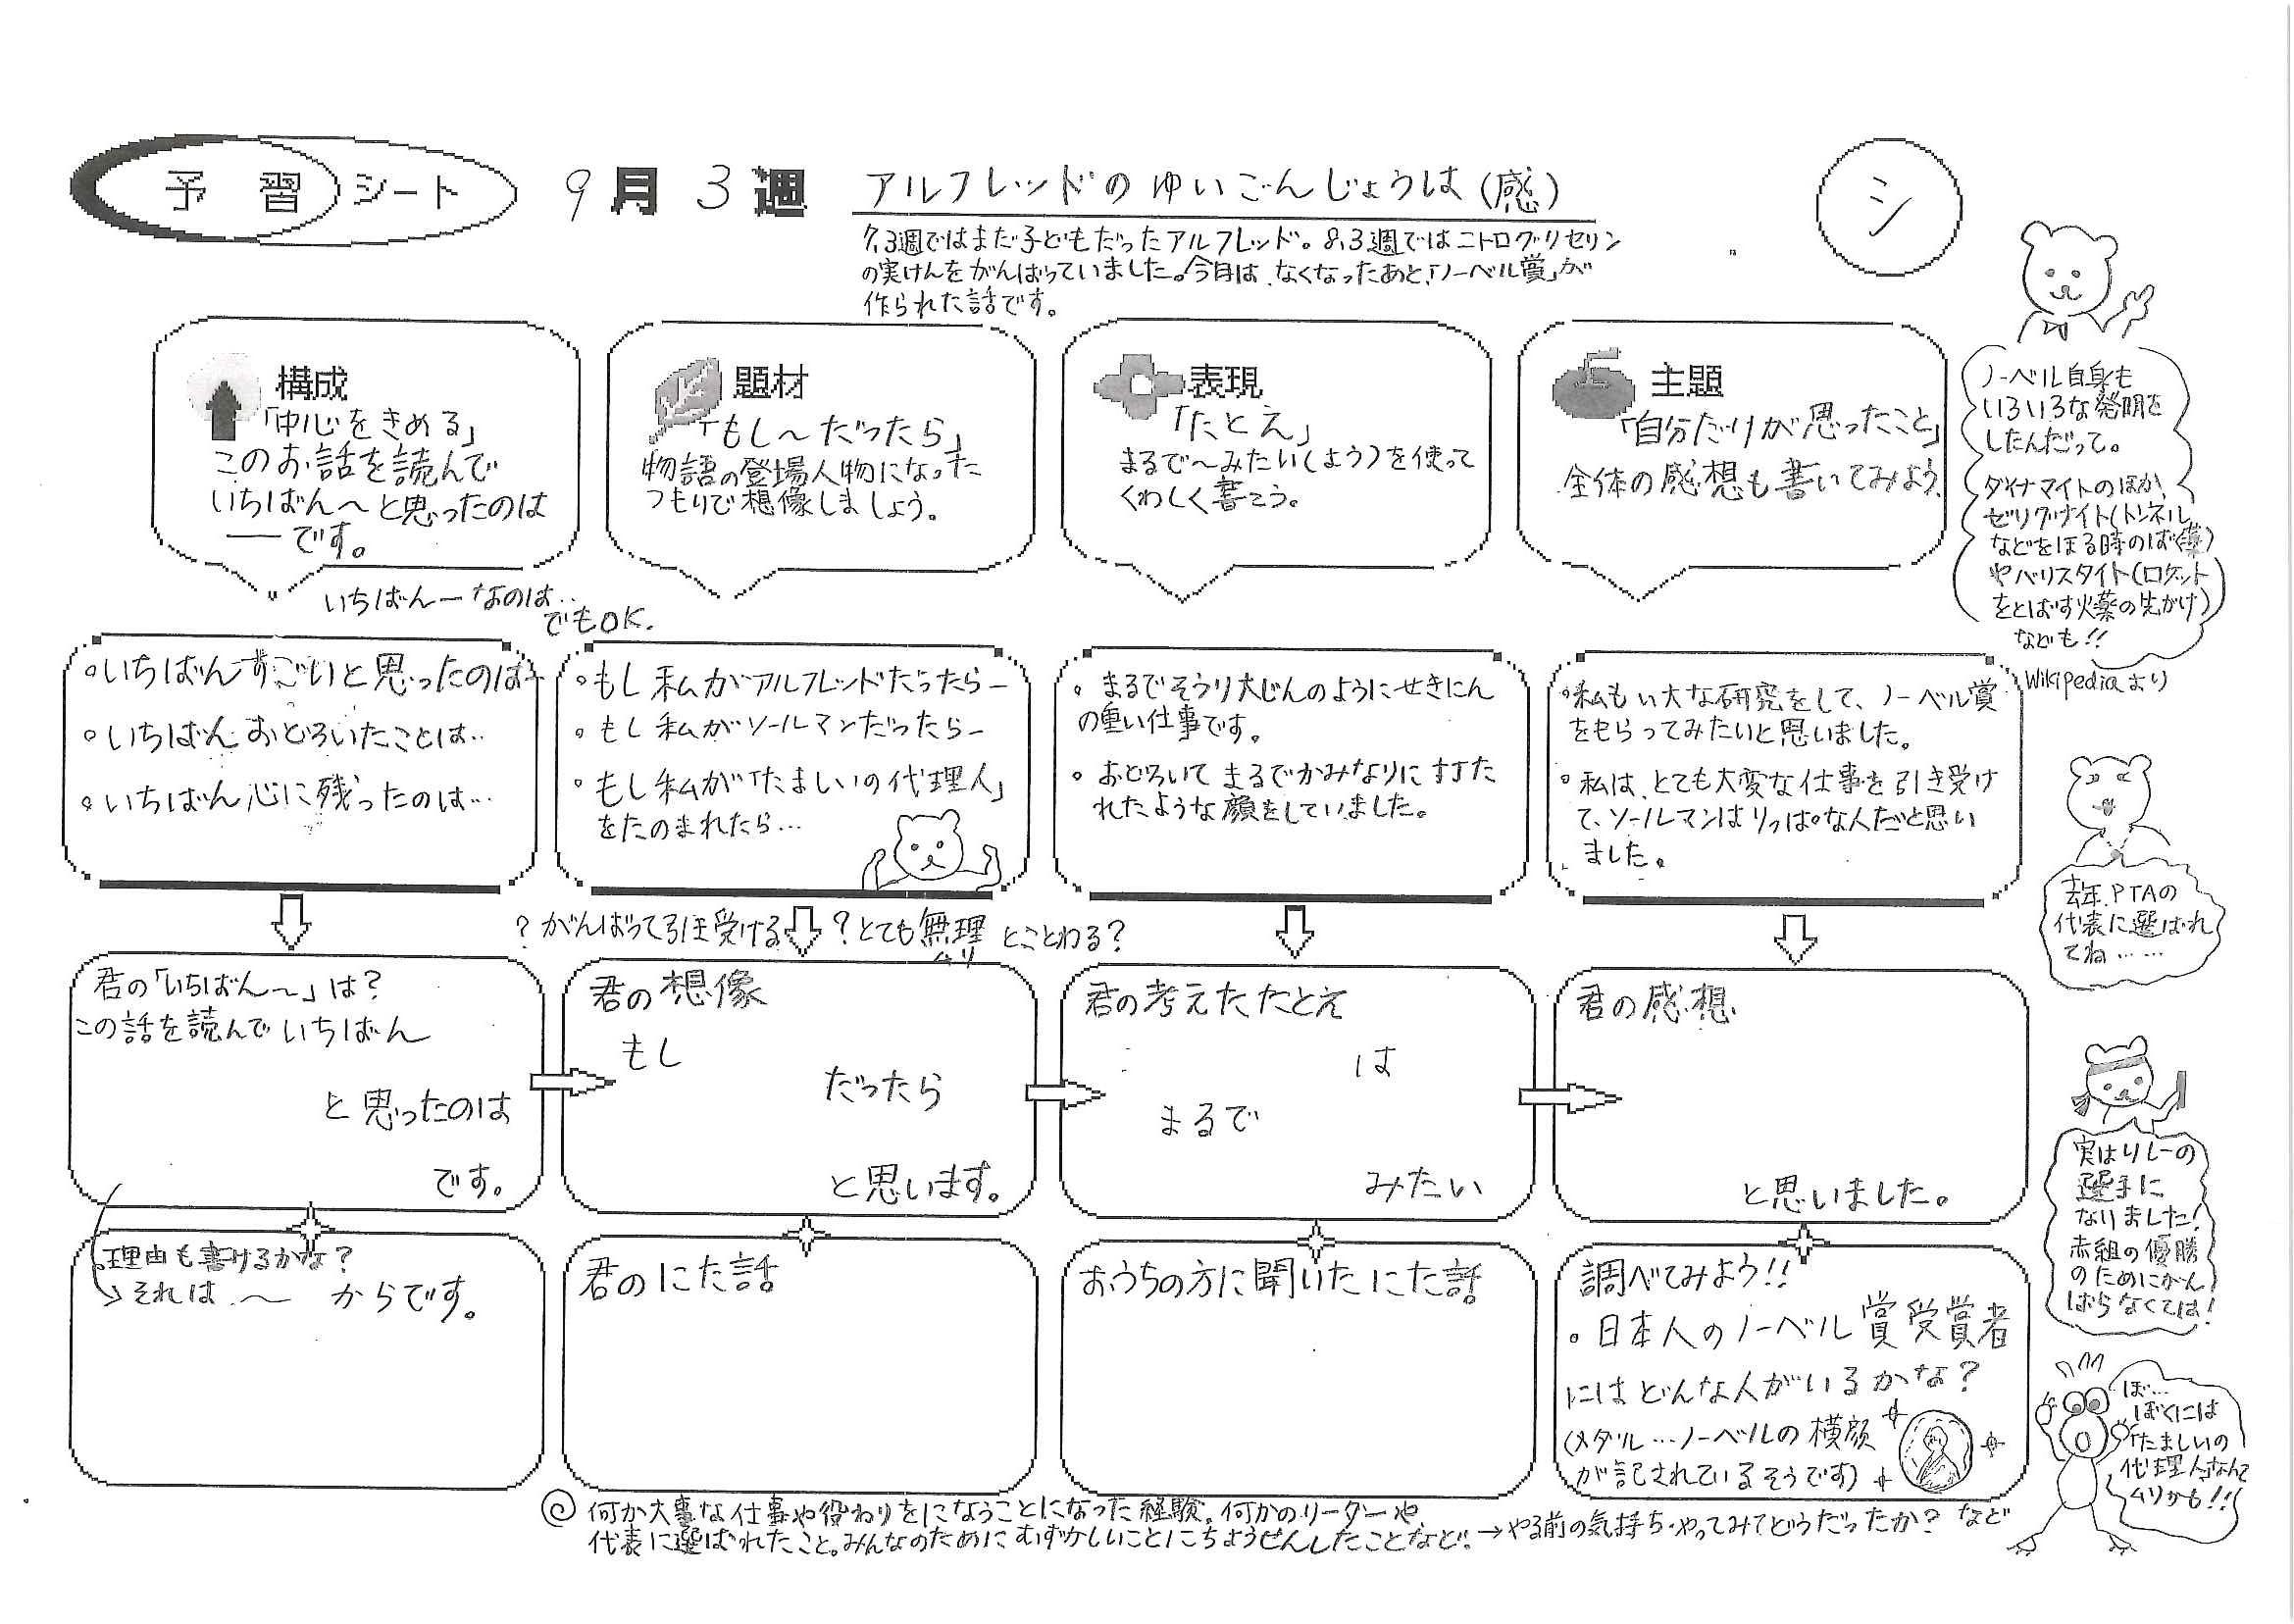 予習シート 9月3週 アルフレッドのゆいごんじょうは(感)
シ
7.3週ではまだ子どもだったアルフレッド。8.3週ではニトログリセリン
の実けんをがんばっていました。今月は、なくなったあと、「ノーベル賞」が
作られた話です。
構成
「中心をきめる」
このお話を読んで
いちばん〜と思ったのは
―です。
いちばん―なのは‥
でもOK.
題材
「もし〜だったら」
物語の登場人物になった
つもりで想像しましょう。
表現
「たとえ」
まるで〜みたい(よう)を使って
くわしく書こう。
主題
「自分だけが思ったこと」
全体の感想も書いてみよう。
ノーベル自身も
いろいろな発明を
したんだって。
ダイナマイトのほか、
ゼリグナイト(トンネル
などをほる時のばく薬)
やバリスタイト(ロケット
をとばす火薬の先がけ)
なども!!
Wikipediaより
・いちばんすごいと思ったのは―
・いちばんおどろいたことは‥
・いちばん心に残ったのは…
・もし私がアルフレッドだったら―
・もし私がソールマンだったら―
・もし私が「たましいの代理人」
をたのまれたら…
・まるでそうり大じんのようにせきにん
の重い仕事です。
・おどろいてまるでかみなりに打た
れたような顔をしていました。
・私もい大な研究をして、ノーベル賞
をもらってみたいと思いました。
・私は、とても大変な仕事を引き受け
て、ソールマンはりっぱな人だと思い
ました。
去年、PTAの
代表に選ばれ
てね……
?がんばって引き受ける ?とても無理とことわる?
ムリ
君の「いちばん〜」は?
この話を読んでいちばん
と思ったのは
です。
君の想像
もし
だったら
と思います。
君の考えたたとえ
は
まるで
みたい
君の感想
と思いました。
実はリレーの
選手に
なりました!
赤組の優勝
のためにがん
ばらなくては!
理由も書けるかな?
それは 〜 からです。
君のにた話
おうちの方に聞いたにた話
調べてみよう!!
・日本人のノーベル賞受賞者
にはどんな人がいるかな?
(メダル…ノーベルの横顔
が記されているそうです)
ぼ…
ぼくには
「たましいの
代理人」なんて
ムリかも!!
何か大事な仕事や役わりをになうことになった経験。何かのリーダーや
代表に選ばれたこと。みんなのためにむずかしいことにちょうせんしたことなど。→やる前の気持ち・やってみてどうだったか?など